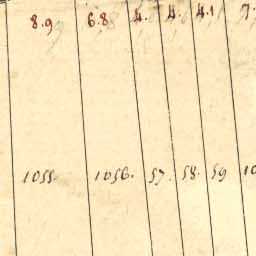 8.9 6.8 4. 4. 4.1 7.
1055. 1056. 57. 58. 59 10